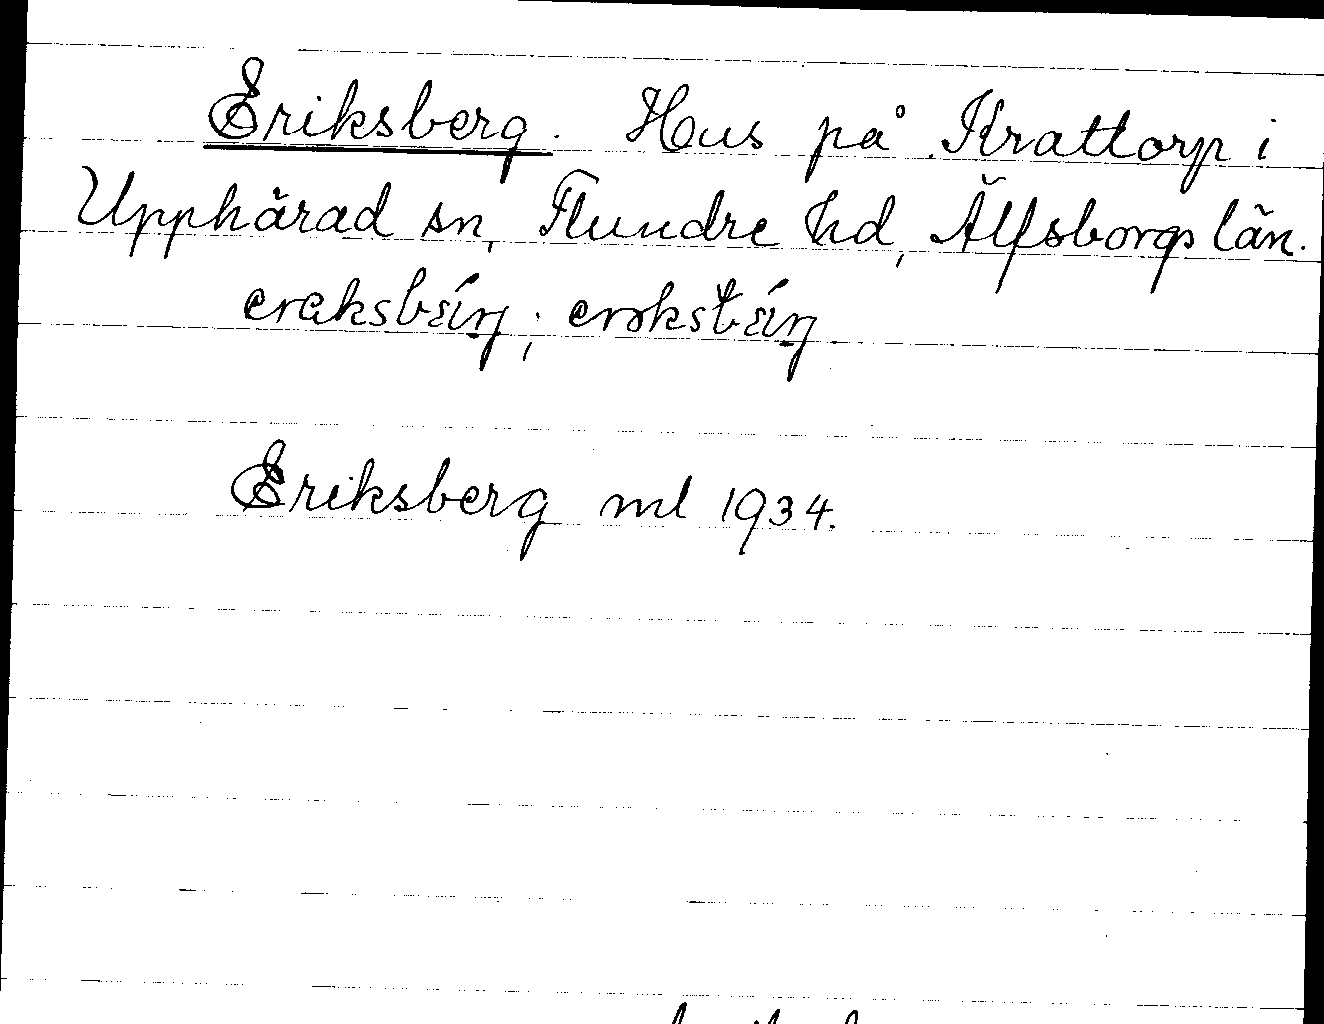 Eriksberg. Hus på Krattorp i
Upphärad sn, Flundre hd, Älfsborgs län.
Eriksberg ml 1934.